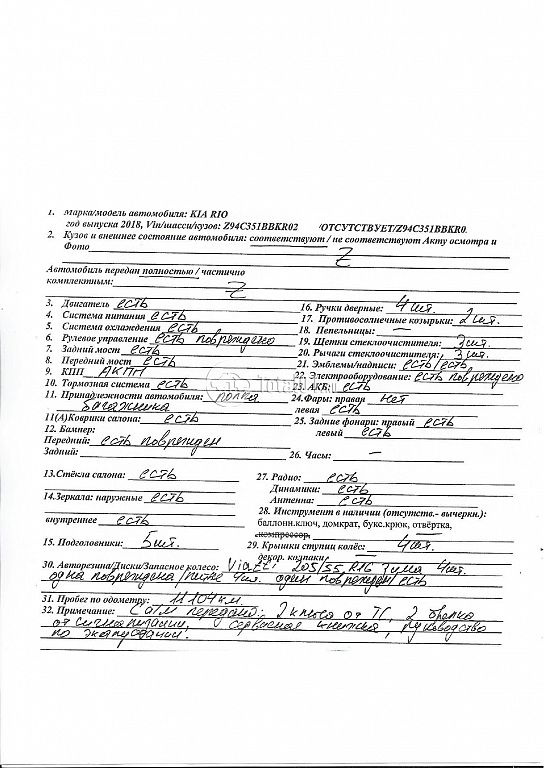 1. Марка/модель автомобиля: KIA RIO
год выпуска 2018, Vin/шасси/кузов: Z94C351BBKR02 /ОТСУТСТВУЕТ/Z94C351BBKR0
2. Кузов и внешнее состояние автомобиля: соответствуют / не соответствуют Акту осмотра и
Фото Z
Автомобиль передан полностью / частично
комплектным: Z
3. Двигатель есть
4. Система питания есть
5. Система охлаждения есть
6. Рулевое управление есть повреждено
7. Задний мост есть
8. Передний мост есть
9. КПП АКПП
10. Тормозная система есть
11. Принадлежности автомобиля: полка
багажника
11(А)Коврики салона: есть
12. Бампер:
Передний: есть поврежден
Задний:
13.Стёкла салона: есть
14.Зеркала: наружные есть
внутреннее есть
15. Подголовники: 5шт.
16. Ручки дверные: 4шт.
17. Противосолнечные козырьки: 2шт.
18. Пепельницы: —
19. Щетки стеклоочистителя: 3шт.
20. Рычаги стеклоочистителя: 3шт.
21. Эмблемы/надписи: есть/есть
22. Электрооборудование: есть повреждено
23. АКБ: есть
24.Фары: правая нет
левая есть
25. Задние фонари: правый есть
левый есть
26. Часы: —
27. Радио: есть
Динамики: есть
Антенна: есть
28. Инструмент в наличии (отсутств.- вычеркн.):
баллонн.ключ, домкрат, букс.крюк, отвёртка,
компрессор,
29. Крышки ступиц колёс: 4шт.
декор. колпаки
30. Авторезина/Диски/Запасное колесо: Viatti 205/55 R16 зима 4шт.
одна повреждена/литые 4шт. один поврежден/есть
31. Пробег по одометру: 11104км.
32. Примечание: передний: 2 ключа от ТС, 2 брелка
от сигнализации, сервисная книжка, руководство
по эксплуатации.